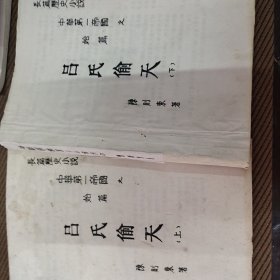 長篇歷史小說
中華第一帝國之
始篇
呂氏偷天
(下)
陳則東著
長篇歷史小說
中華第一帝國之
始篇
呂氏偷天
(上)
陳則東著